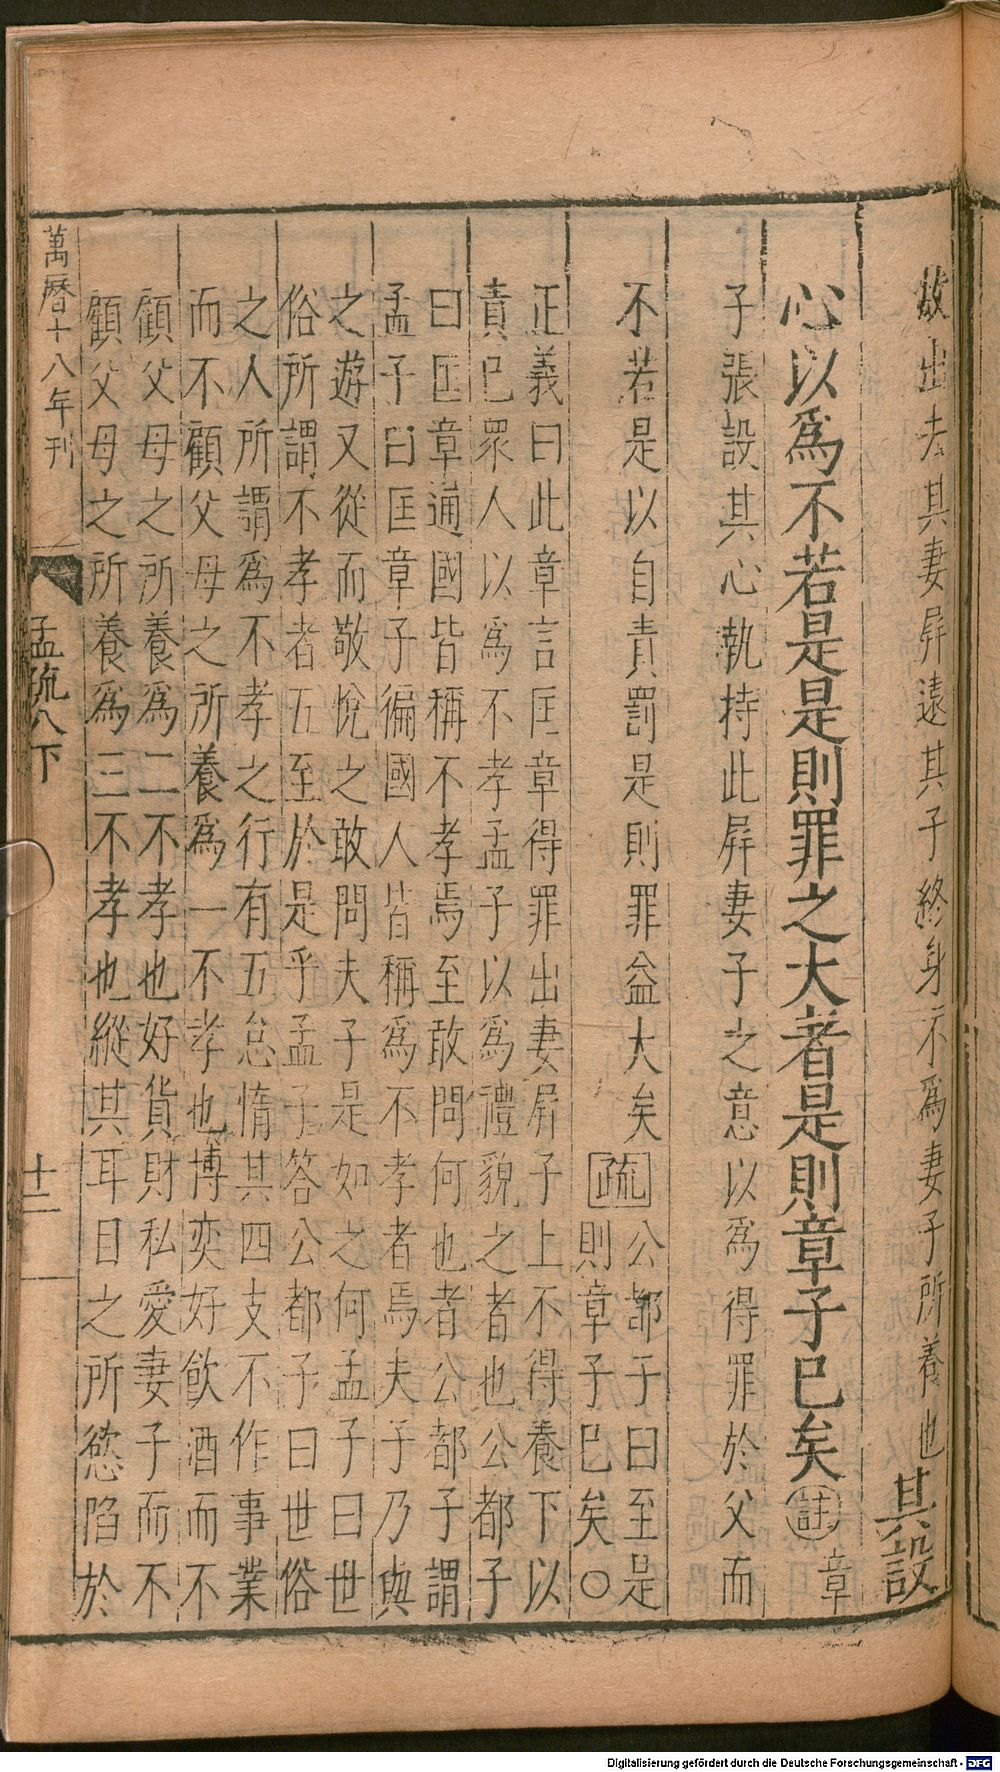 故出去其妻屏遠其子終身不為妻子所養也其設
心以爲不若是是則罪之大者是則章子巳矣註章
子張設其心執持此屏妻子之意以爲得罪於父而
不若是以自責罰是則罪益大矣疏公都子曰至是
則章子巳矣〇
正義曰此章言匡章得罪出妻屏子上不得養下以
責巳眾人以爲不孝孟子以爲禮貌之者也公都子
曰匡章通國皆稱不孝焉至敢問何也者公都子謂
孟子曰匡章子徧國人皆稱爲不孝者焉夫子乃與
之遊又從而敬悅之敢問夫子是如之何孟子曰世
俗所謂不孝者五至於是乎孟子答公都子曰世俗
之人所謂爲不孝之行有五怠惰其四支不作事業
而不顧父母之所養爲一不孝也博奕好飮酒而不
顧父母之所養爲二不孝也好貨財私愛妻子而不
顧父母之所養爲三不孝也縱其耳目之所慾陷於
萬曆十八年刊
孟疏八下
十二
Digitalisierung gefördert durch die Deutsche Forschungsgemeinschaft - DFG